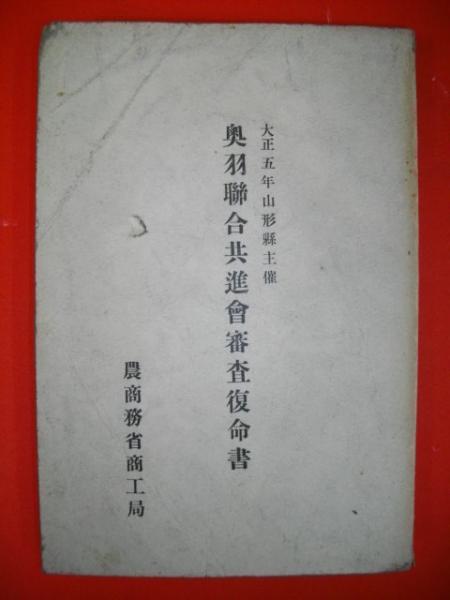 大正五年山形縣主催
奥羽聯合共進會審査復命書
農商務省商工局